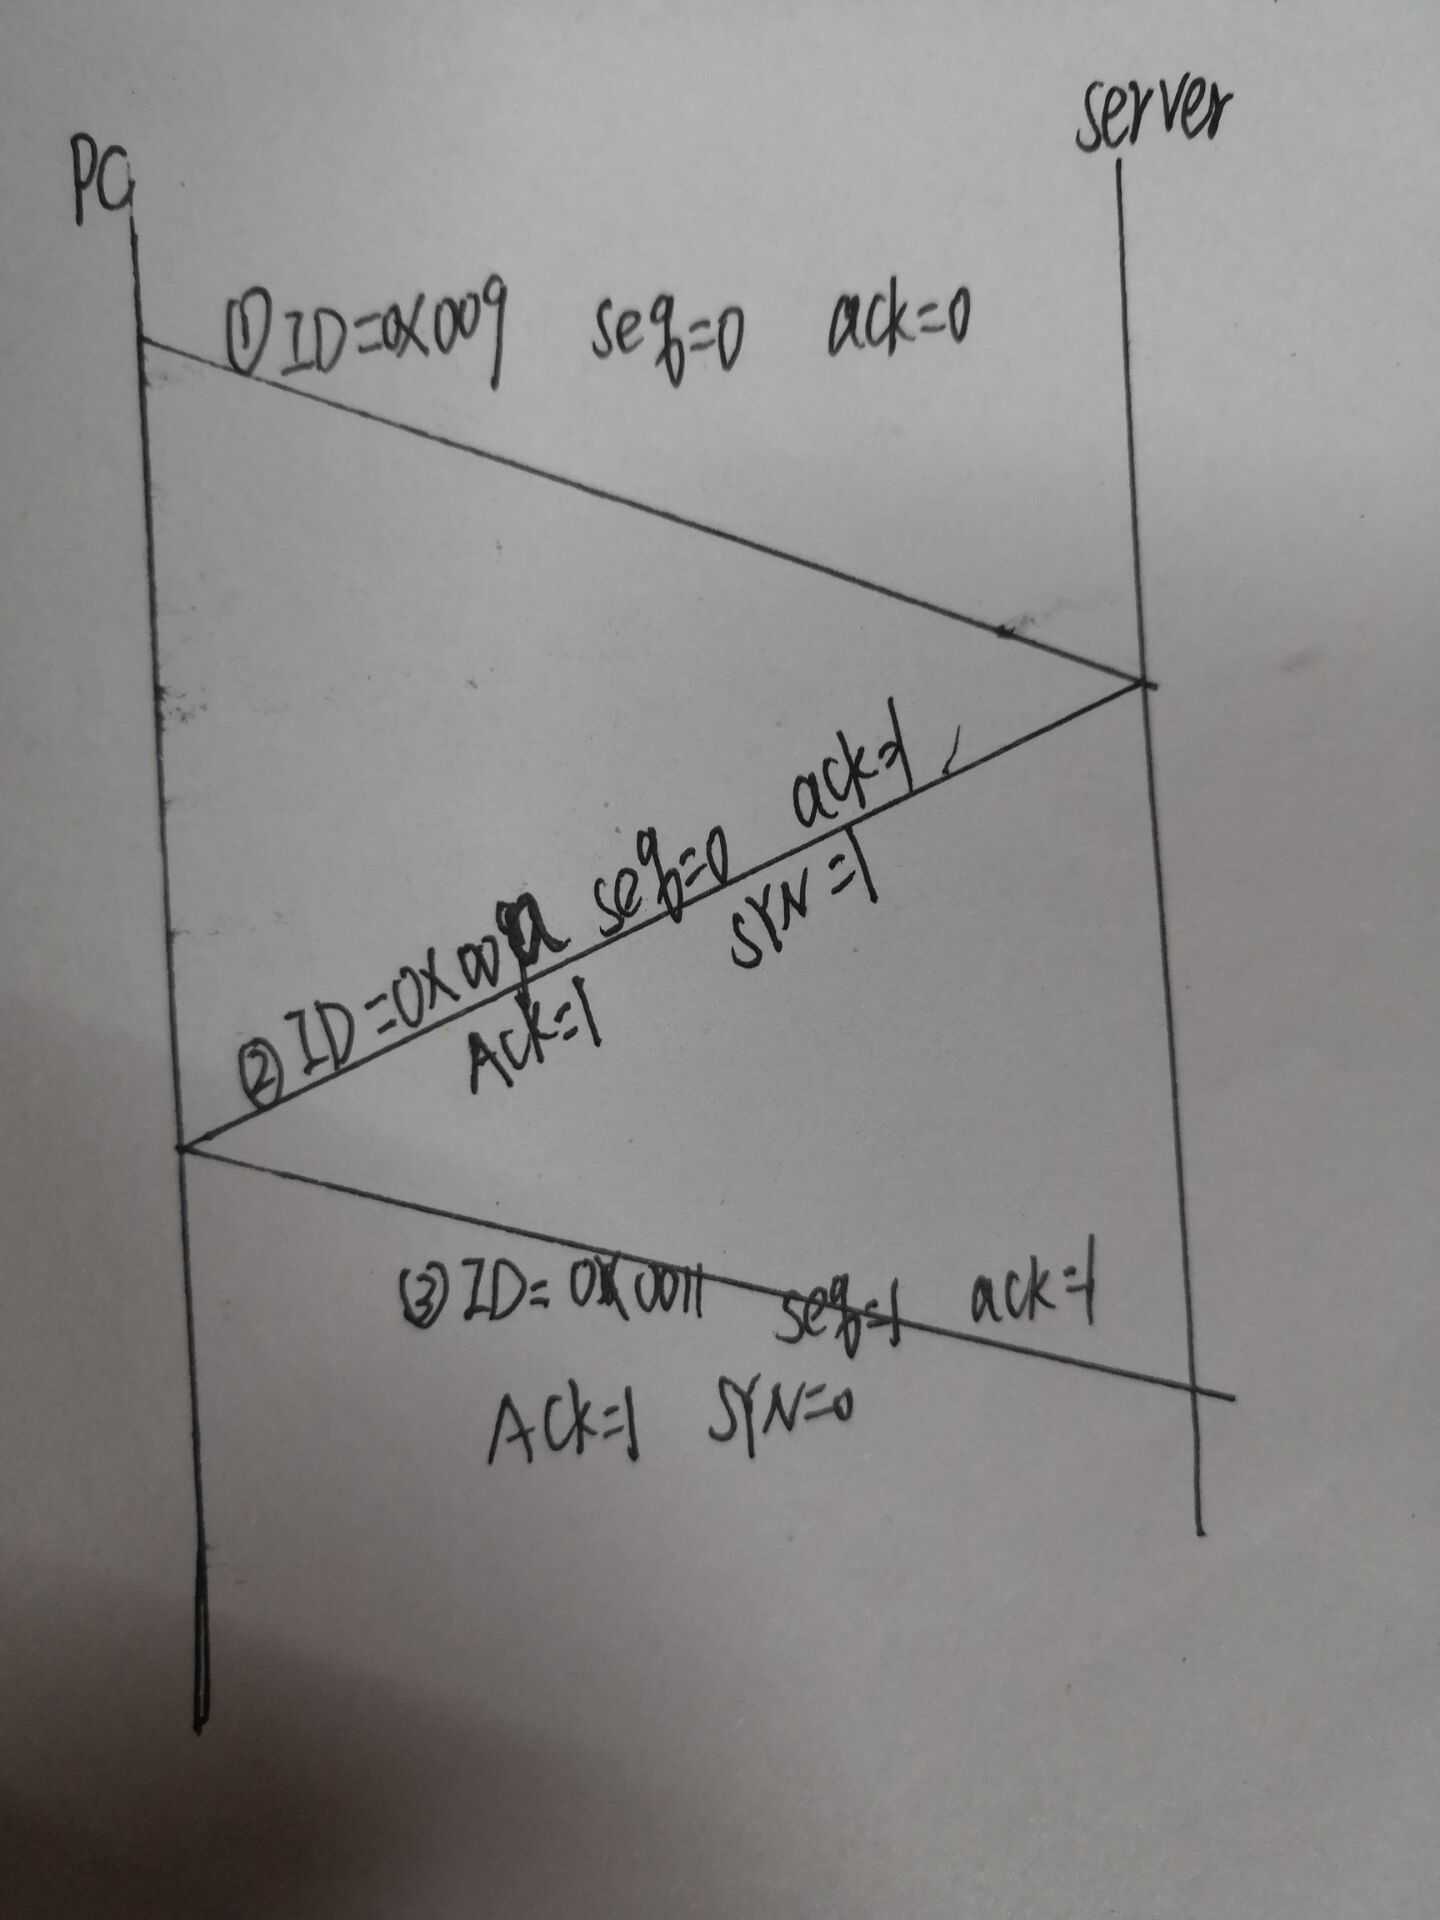 PC
server
①ID=0X009 seq=0 ack=0
②ID=0X00a seq=0 ack=1
Ack=1 SYN=1
③ID=0X0011 seq=1 ack=1
ACk=1 SYN=0